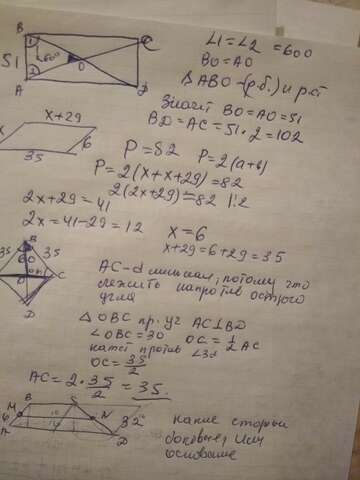 B C
1 60°
51 O
2
A D
∠1 = ∠2 = 60°
BO = AO
△ABO – (р.б.) и р.ст
Значит BO = AO = 51
BD = AC = 51 · 2 = 102
x + 29
x 6
35
P = 82 P = 2(a+b)
P = 2(x + x + 29) = 82
2(2x + 29) = 82 |:2
2x + 29 = 41
2x = 41 - 29 = 12 x = 6
x + 29 = 6 + 29 = 35
B
35 60 35
O C
D
AC – d
потому что
лежить напротив острого
угла
△ OBC пр. уг AC ⊥ BD
∠OBC = 30° OC = 1/2 AC
катет против ∠30
OC = 35/2
AC = 2 · 35/2 = 35
B S
M N
6 10 32
A D
какие стороны
боковые, или
основание